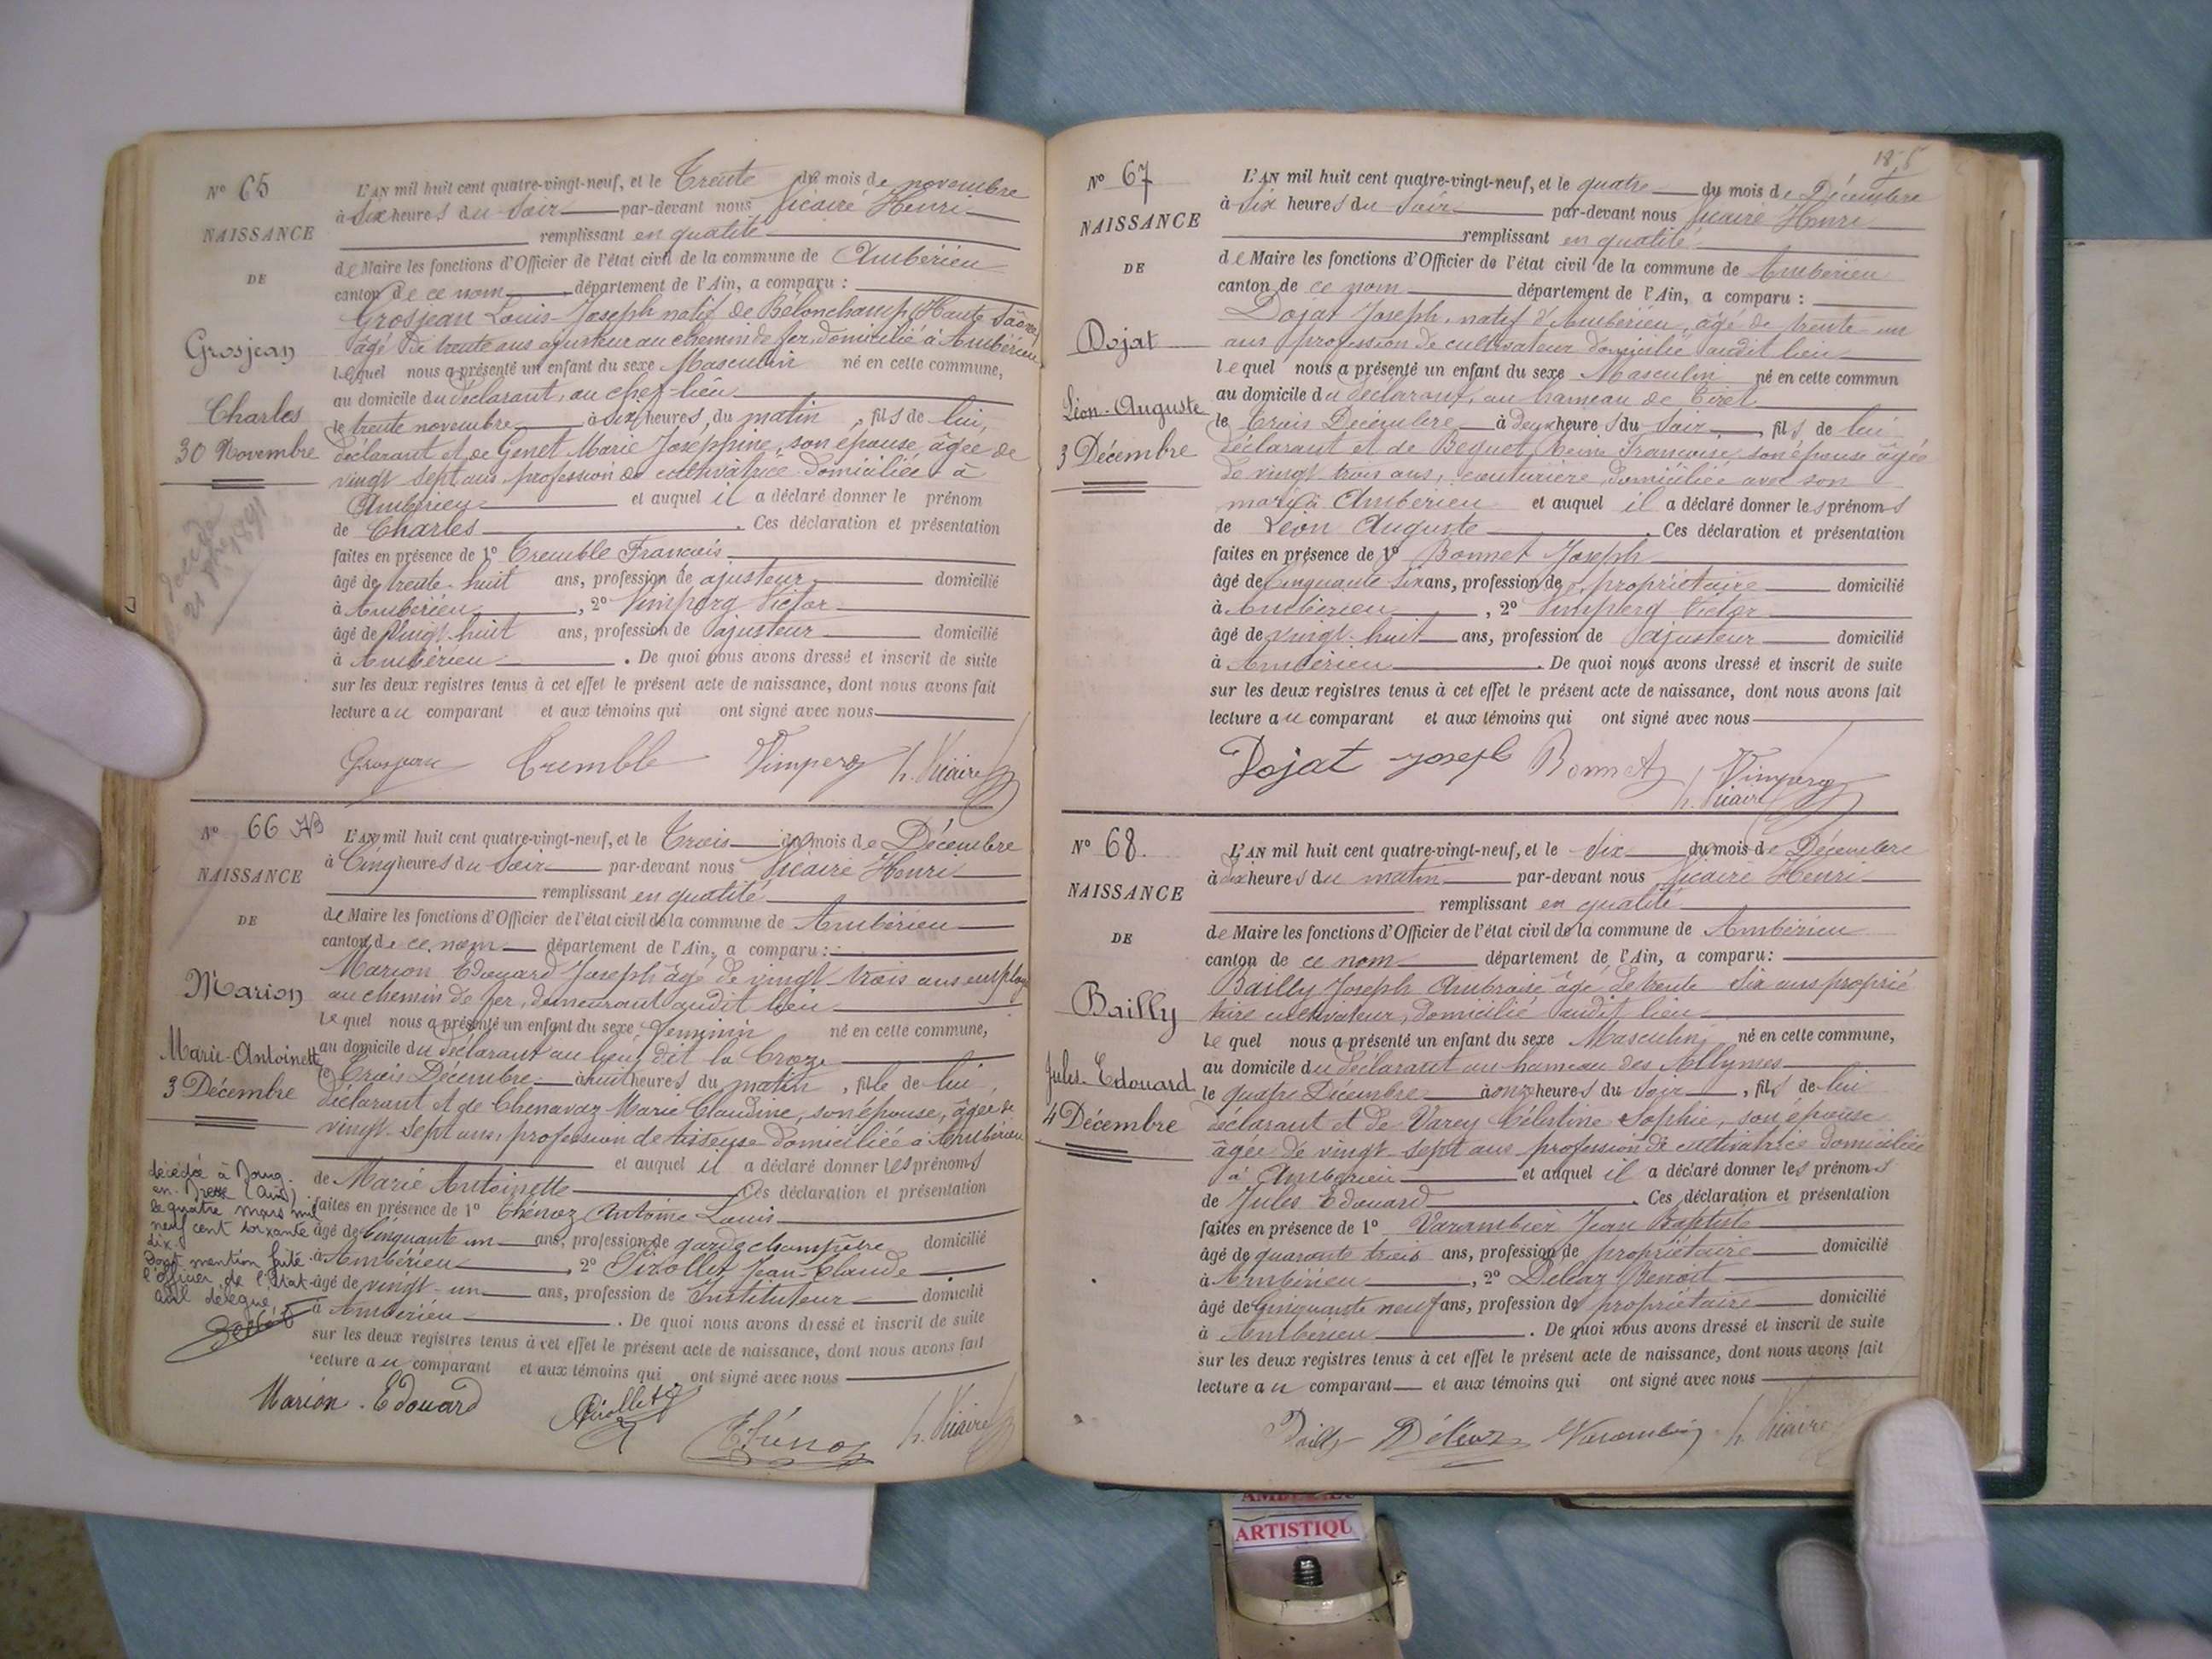 N° 65
NAISSANCE
DE
Grosjean
Charles
30 Novembre
décédé
1891
L'AN mil huit cent quatre-vingt-neuf, et le Trente du mois de novembre
à Six heures du Soir par-devant nous Vicaire Henri
remplissant en qualité
de Maire les fonctions d'Officier de l'état civil de la commune de Ambérieu
canton de ce nom département de l'Ain, a comparu :
Grosjean Louis-Joseph natif de Bélonchamp (Haute Saône)
âgé de trente ans ajusteur au chemin de fer, domicilié à Ambérieu
lequel nous a présenté un enfant du sexe Masculin né en cette commune,
au domicile du déclarant, au chef-lieu
le trente novembre à six heures du matin, fils de lui,
déclarant et de Genet Marie Joséphine, son épouse, âgée de
vingt sept ans, profession de cultivatrice domiciliée à
Ambérieu et auquel il a déclaré donner le prénom
de Charles. Ces déclaration et présentation
faites en présence de 1° Tremble François
âgé de trente-huit ans, profession de ajusteur domicilié
à Ambérieu, 2° Vimperg Victor
âgé de vingt-huit ans, profession de ajusteur domicilié
à Ambérieu. De quoi nous avons dressé et inscrit de suite
sur les deux registres tenus à cet effet le présent acte de naissance, dont nous avons fait
lecture au comparant et aux témoins qui ont signé avec nous
Grosjean Tremble Vimperg h. Vicaire
N° 66
NAISSANCE
DE
Marion
Marie-Antoinette
3 Décembre
décédée à Bourg
en Bresse (Ain)
le quatre mars mil
neuf cent soixante
dix.
Dont mention faite.
l'officier de l'état
civil délégué,
L'AN mil huit cent quatre-vingt-neuf, et le Trois du mois de Décembre
à Cinq heures du Soir par-devant nous Vicaire Henri
remplissant en qualité
de Maire les fonctions d'Officier de l'état civil de la commune de Ambérieu
canton de ce nom département de l'Ain, a comparu :
Marion Edouard Joseph âgé de vingt trois ans employé
au chemin de fer, demeurant audit lieu
lequel nous a présenté un enfant du sexe féminin né en cette commune,
au domicile du déclarant au lieu dit la Croze
le Trois Décembre à huit heures du matin, fille de lui,
déclarant et de Chenavaz Marie Claudine, son épouse, âgée de
vingt-sept ans, profession de tisseuse domiciliée à Ambérieu
et auquel il a déclaré donner les prénoms
de Marie Antoinette Ces déclaration et présentation
faites en présence de 1° Antoine Louis
âgé de cinquante un ans, profession de garde champêtre domicilié
à Ambérieu, 2° Pirollet Jean-Claude
âgé de vingt-un ans, profession de Instituteur domicilié
à Ambérieu. De quoi nous avons dressé et inscrit de suite
sur les deux registres tenus à cet effet le présent acte de naissance, dont nous avons fait
lecture au comparant et aux témoins qui ont signé avec nous
Marion Edouard Pirollet h. Vicaire
N° 67
NAISSANCE
DE
Dojat
Léon-Auguste
3 Décembre
L'AN mil huit cent quatre-vingt-neuf, et le quatre du mois de Décembre
à Six heures du Soir par-devant nous Vicaire Henri
remplissant en qualité
de Maire les fonctions d'Officier de l'état civil de la commune de Ambérieu
canton de ce nom département de l'Ain, a comparu :
Dojat Joseph, natif d'Ambérieu, âgé de trente-un
ans profession de cultivateur domicilié audit lieu
lequel nous a présenté un enfant du sexe Masculin né en cette commun
au domicile du déclarant, au hameau de Tiret
le Trois Décembre à deux heures du Soir, fils de lui
déclarant et de Beguet Reine Françoise, son épouse âgée
de vingt trois ans, couturière, domiciliée avec son
mari à Ambérieu et auquel il a déclaré donner les prénoms
de Léon Auguste. Ces déclaration et présentation
faites en présence de 1° Bonnet Joseph
âgé de Cinquante six ans, profession de propriétaire domicilié
à Ambérieu, 2° Vimperg Victor
âgé de vingt-huit ans, profession de ajusteur domicilié
à Ambérieu. De quoi nous avons dressé et inscrit de suite
sur les deux registres tenus à cet effet le présent acte de naissance, dont nous avons fait
lecture au comparant et aux témoins qui ont signé avec nous
Dojat Joseph Bonnet Vimperg
h. Vicaire
N° 68.
NAISSANCE
DE
Bailly
Jules-Edouard
4 Décembre
L'AN mil huit cent quatre-vingt-neuf, et le Six du mois de Décembre
à dix heures du matin par-devant nous Vicaire Henri
remplissant en qualité
de Maire les fonctions d'Officier de l'état civil de la commune de Ambérieu
canton de ce nom département de l'Ain, a comparu :
Bailly Joseph Ambroise âgé de trente six ans proprié
taire cultivateur, domicilié audit lieu
lequel nous a présenté un enfant du sexe Masculin né en cette commune,
au domicile du déclarant au hameau des Allymes
le quatre Décembre à onze heures du Soir, fils de lui
déclarant et de Varey Célestine Sophie, son épouse
âgée de vingt-sept ans profession de cultivatrice domiciliée
à Ambérieu et auquel il a déclaré donner les prénoms
de Jules Edouard. Ces déclaration et présentation
faites en présence de 1° Varambier Jean Baptiste
âgé de quarante trois ans, profession de propriétaire domicilié
à Ambérieu, 2° Deléaz Benoît
âgé de cinquante neuf ans, profession de propriétaire domicilié
à Ambérieu. De quoi nous avons dressé et inscrit de suite
sur les deux registres tenus à cet effet le présent acte de naissance, dont nous avons fait
lecture au comparant et aux témoins qui ont signé avec nous
Bailly Déléaz Varambier h. Vicaire
ARTISTIQU